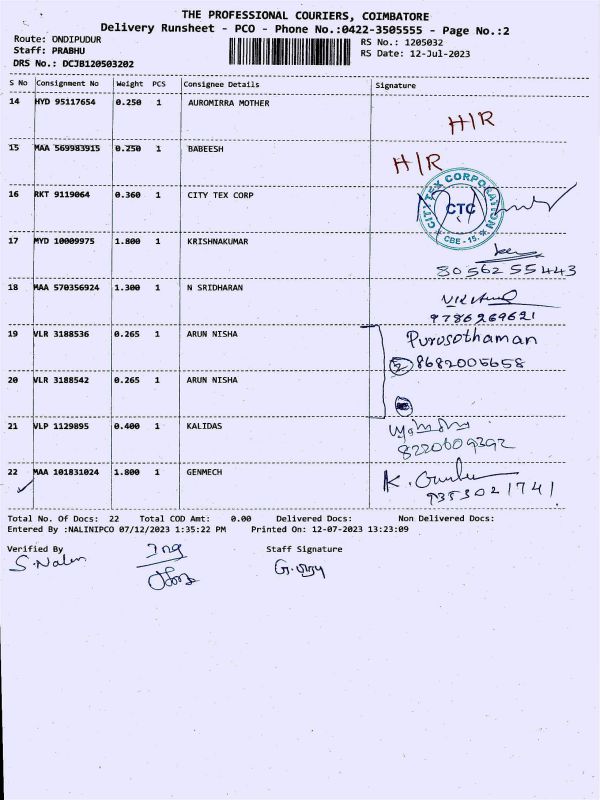 THE PROFESSIONAL COURIERS, COIMBATORE
Delivery Runsheet - PCO - Phone No.:0422-3505555 - Page No.:2
Route: ONDIPUDUR RS No.: 1205032
Staff: PRABHU RS Date: 12-Jul-2023
DRS No.: DCJB120503202
S No Consignment No Weight PCS Consignee Details Signature
14 HYD 95117654 0.250 1 AUROMIRRA MOTHER
H/R
15 MAA 569983915 0.250 1 BABEESH
H/R
16 RKT 9119064 0.360 1 CITY TEX CORP
CITY TEX CORPORATION
CTC
CBE - 15
17 MYD 10009975 1.800 1 KRISHNAKUMAR
80562 55443
18 MAA 570356924 1.300 1 N SRIDHARAN
9786269621
19 VLR 3188536 0.265 1 ARUN NISHA Purusothaman
2 8682005658
20 VLR 3188542 0.265 1 ARUN NISHA
21 VLP 1129895 0.400 1 KALIDAS
8220609392
22 MAA 101831024 1.800 1 GENMECH
9353021741
Total No. Of Docs: 22 Total COD Amt: 0.00 Delivered Docs: Non Delivered Docs:
Entered By :NALINIPCO 07/12/2023 1:35:22 PM Printed On: 12-07-2023 13:23:09
Verified By Staff Signature
S.Nalin